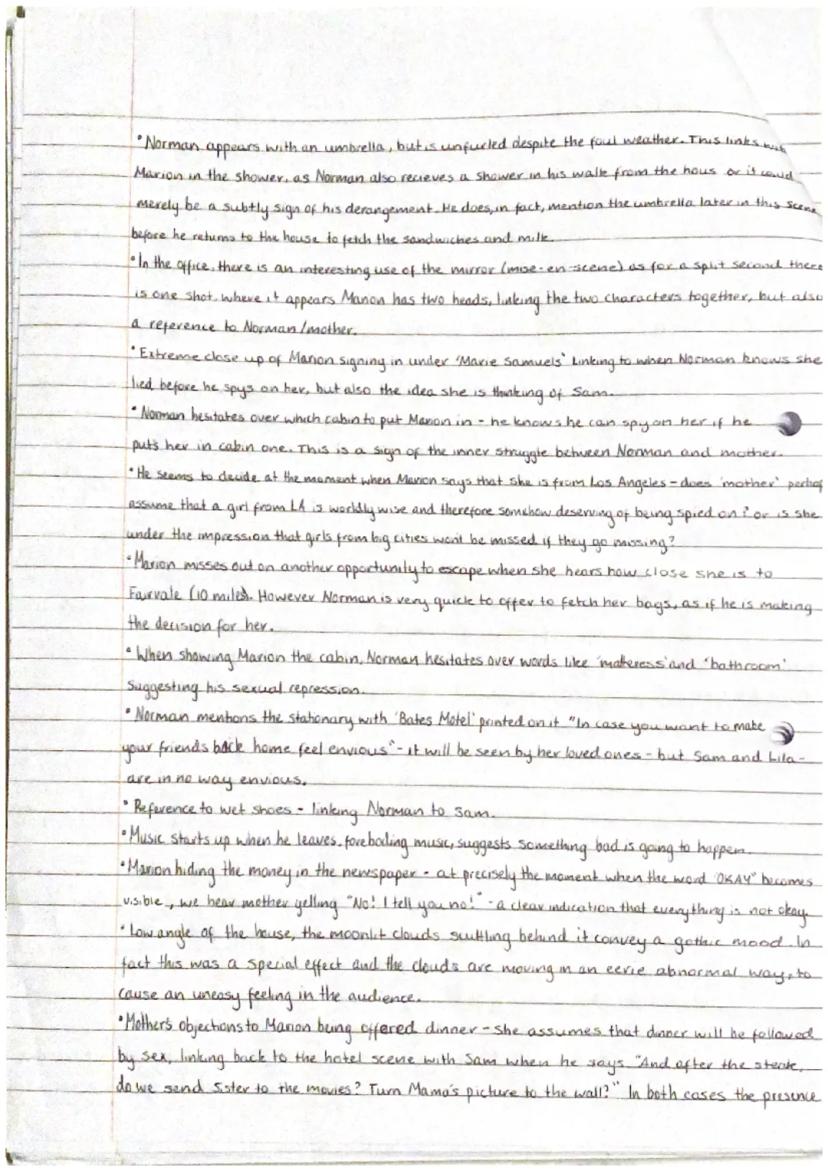 •Norman appears with an umbrella, but is unfurled despite the foul weather. This links with
Marion in the shower, as Norman also recieves a shower in his walk from the hous or it could
merely be a subtly sign of his derangement. He does, in fact, mention the umbrella later in this scene
before he returns to the house to fetch the sandwiches and milk.
•In the office, there is an interesting use of the mirror (mise-en-scene) as for a split second there
is one shot, where it appears Marion has two heads, linking the two characters together, but also
a reference to Norman/mother.
•Extreme close up of Marion signing in under 'Marie Samuels' linking to when Norman knows she
lied before he spys on her, but also the idea she is thinking of Sam.
•Norman hesitates over which cabin to put Marion in - he knows he can spy on her if he
puts her in cabin one. This is a sign of the inner struggle between Norman and mother.
•He seems to decide at the moment when Marion says that she is from Los Angeles - does 'mother' perhap
assume that a girl from LA is worldly wise and therefore somehow deserving of being spied on? or is she
under the impression that girls from big cities wont be missed if they go missing?
•Marion misses out on another opportunity to escape when she hears how close she is to
Fairvale (10 miles). However Norman is very quick to offer to fetch her bags, as if he is making
the decision for her.
•When showing Marion the cabin, Norman hesitates over words like 'mattress' and 'bathroom'
suggesting his sexual repression.
•Norman mentions the stationary with 'Bates Motel' printed on it "In case you want to make
your friends back home feel envious" - it will be seen by her loved ones - but Sam and Lila -
are in no way envious.
•Reference to wet shoes - linking Norman to Sam.
•Music starts up when he leaves, foreboding music, suggests something bad is going to happen.
•Marion hiding the money in the newspaper - at precisely the moment when the word 'OKAY' becomes
visible, we hear mother yelling "No! I tell you no!" - a clear indication that everything is not okay
•Low angle of the house, the moonlit clouds scuttling behind it convey a gothic mood. In
fact this was a special effect and the clouds are moving in an eerie abnormal way, to
cause an uneasy feeling in the audience.
•Mother's objections to Marion being offered dinner - she assumes that dinner will be followed
by sex, linking back to the hotel scene with Sam when he says "And after the steak,
do we send Sister to the movies? Turn Mama's picture to the wall?" In both cases the presence